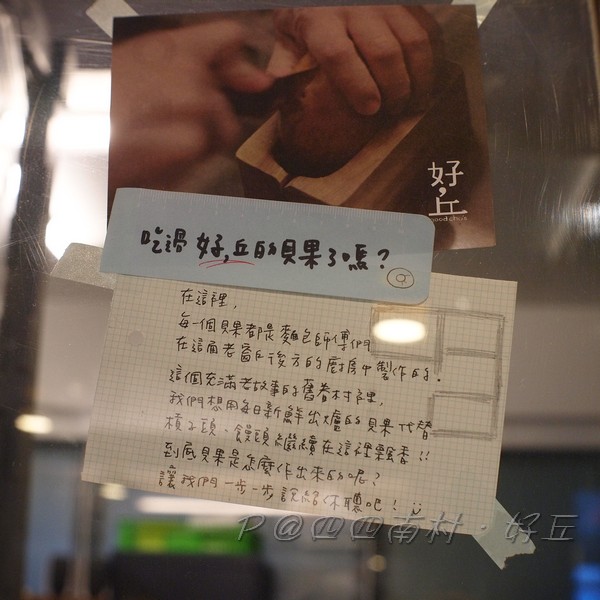 好,丘
good cho's
吃過好,丘的貝果了嗎?
在這裡,
每一個貝果都是麵包師傅們
在這面老窗戶後方的廚房中製作的.
這個充滿老故事的舊眷村裡,
我們想用每日新鮮出爐的貝果代替
槓子頭、饅頭繼續在這裡飄香!!
到底貝果是怎麼作出來的呢?
讓我們一步一步說給你聽吧!
P@四四南村·好丘